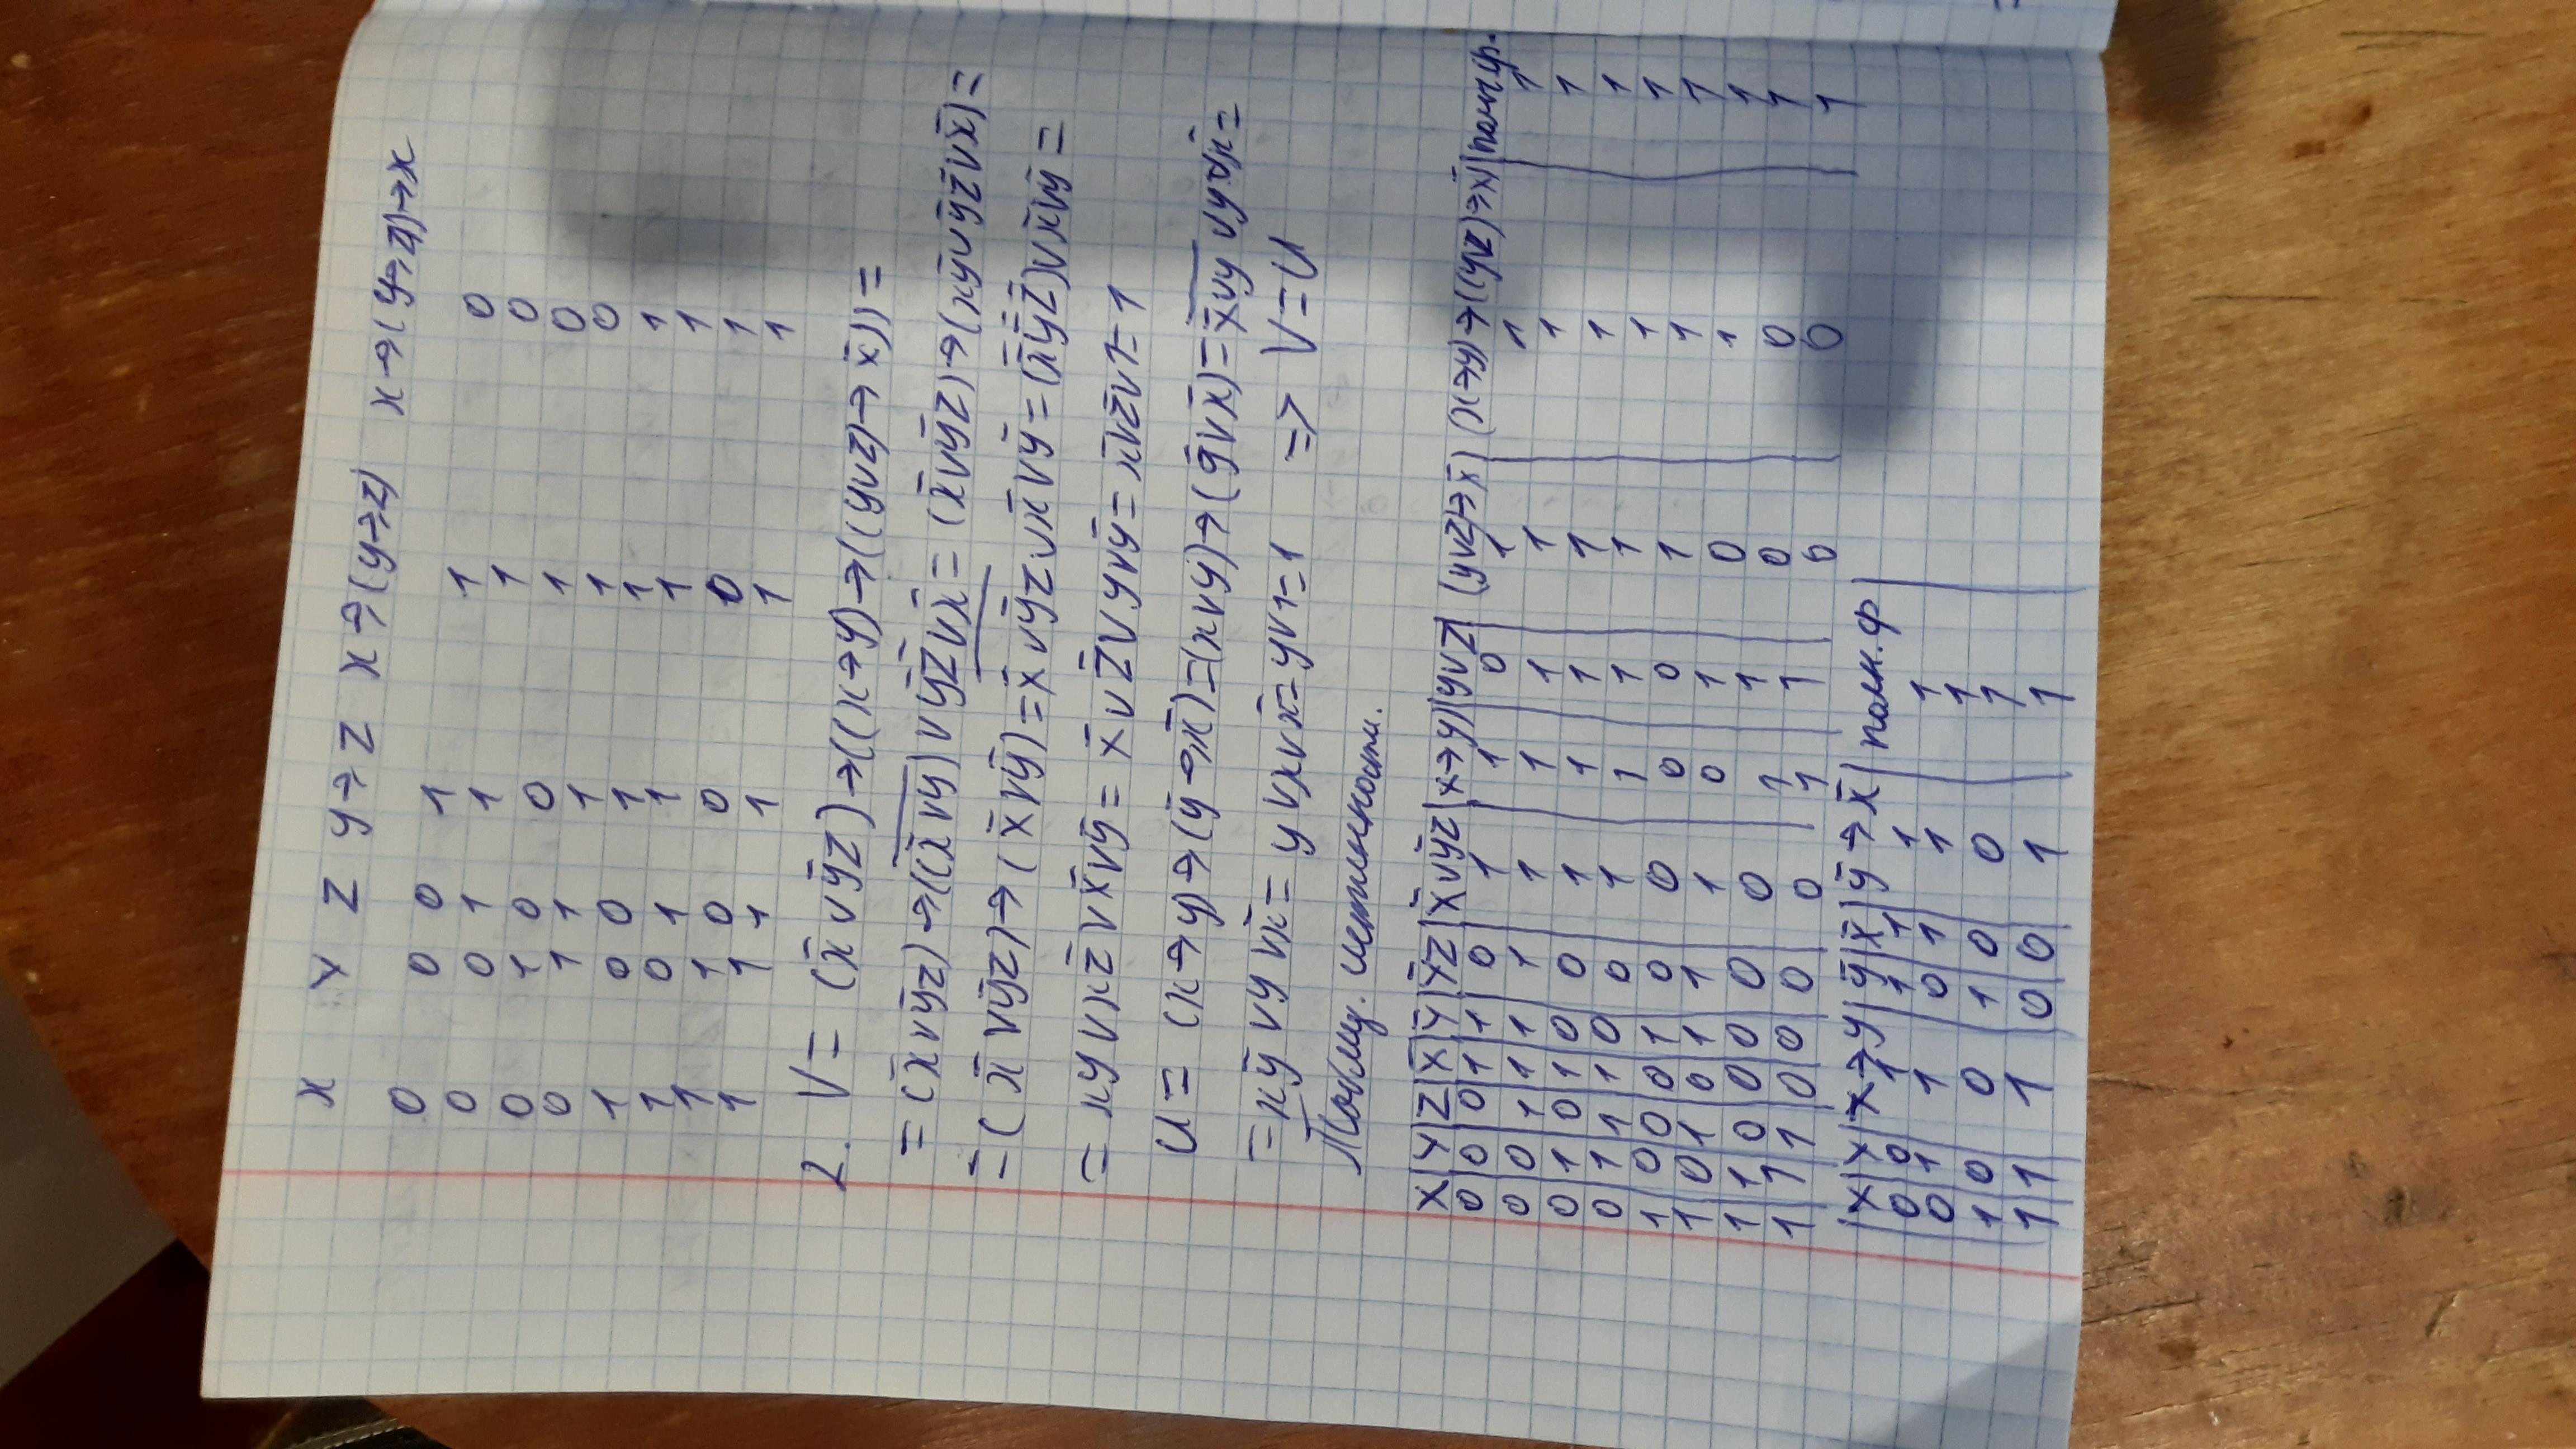 x y z y→z x→(y→z) x→(y→z))→x
0 0 0 1 1 0
0 0 1 1 1 0
0 1 0 0 1 0
0 1 1 1 1 0
1 0 0 1 1 1
1 0 1 1 1 1
1 1 0 0 0 1
1 1 1 1 1 1
2. V= (x̄∨ȳz)→((x→y)→((y∨z)→x̄))=
=(x̄∨ȳz)→((x̄∨y)‾∨ȳz̄∨x̄=(x̄∨ȳz)→(xȳ∨ȳz̄∨x̄)=
=(x̄∨ȳz)→(x̄∨ȳ)=‾x̄∨ȳz‾∨x̄∨ȳ=(x̿ȳ̄z̄)∨x̄∨ȳ=
= xy∨xz̄∨x̄∨ȳ=x̄∨z̄∨y∨ȳ=x̄∨z̄∨1=1
U= (x→y)→(ȳ→x̄)=(x∨y)→(ȳ̄∨x̄)=‾x̄∨y‾∨y∨x̄=
=xȳ∨y∨x̄=y∨x∨x̄=y∨1=1 => V=U
Таблиц. истинности.
X|Y|Z|X̄|Ȳ|ȲZ|x̄∨ȳz|x→y)|y∨z|(y∨z)→x̄|(x→y)→((y∨z)→x̄)|полн.ф.
0 0 0 1 1 0 1 1 0 1 1 1
0 0 1 1 1 1 1 1 1 1 1 1
0 1 0 1 0 0 1 1 1 1 1 1
0 1 1 1 0 0 1 1 1 1 1 1
1 0 0 0 1 0 0 0 0 1 1 1
1 0 1 0 1 1 1 0 1 0 1 1
1 1 0 0 0 0 0 1 1 0 0 1
1 1 1 0 0 0 0 1 1 0 0 1
|X|Y|x→y|ȳ|x̄|ȳ→x̄|полн.ф|
0 0 1 1 1 1 1
0 1 1 0 1 1 1
1 0 0 1 0 0 1
1 1 1 0 0 1 1